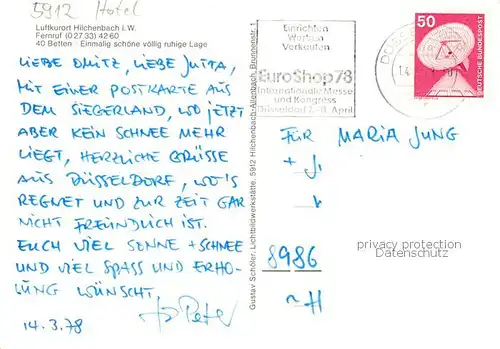 5912 Hotel
Luftkurort Hilchenbach i. W.
Fernruf (0 27 33) 42 60
40 Betten · Einmalig schöne völlig ruhige Lage
LIEBE LIEBE JUTTA,
MIT EINER POSTKARTE AUS
DEM SIEGERLAND, WO JETZT
ABER KEIN SCHNEE MEHR
LIEGT, HERZLICHE GRÜSSE
AUS DÜSSELDORF, WO'S
REGNET UND ZUR ZEIT GAR
NICHT FREUNDLICH IST.
EUCH VIEL SONNE + SCHNEE
UND VIEL SPASS UND ERHO-
LUNG WÜNSCHT
Peter
14.3.78
Gustav Schöler, Lichtbildwerkstätte, 5912 Hilchenbach-Allenbach, Brunnenstr. 1
Einrichten
Werben
Verkaufen
EuroShop78
Internationale Messe
und Kongress
Düsseldorf 7.-11. April
50
DEUTSCHE BUNDESPOST
FÜR MARIA JUNG
8986
privacy protection
Datenschutz